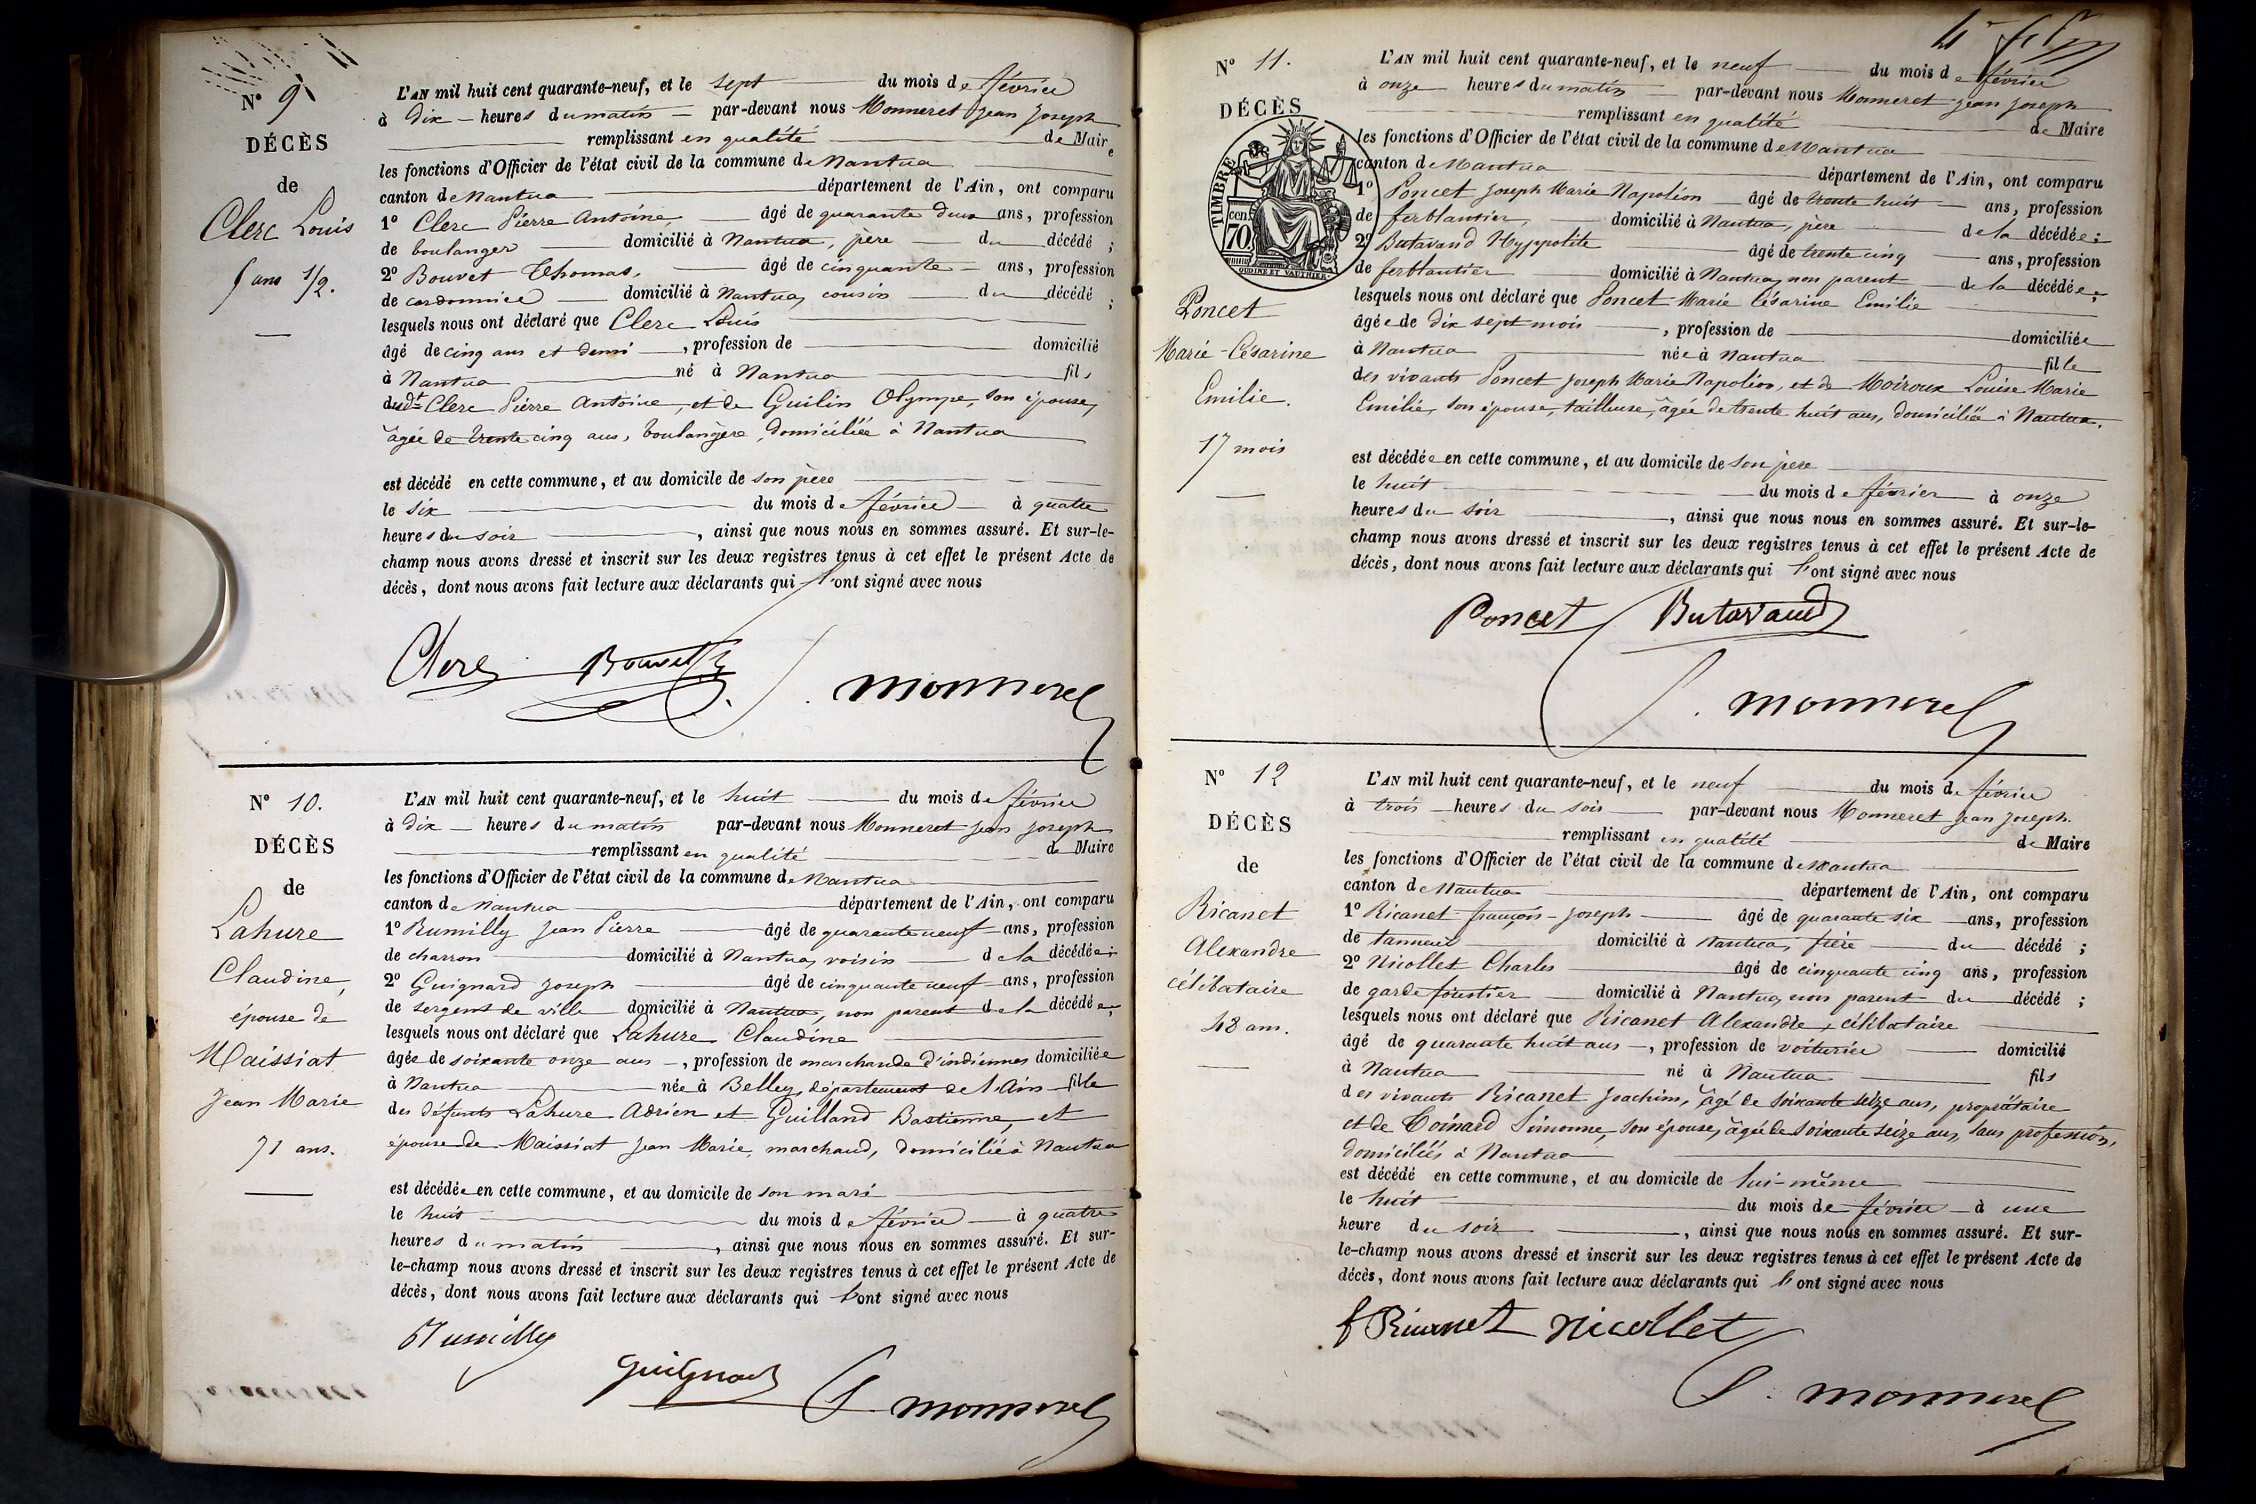 N° 9
DÉCÈS
de
Clerc Louis
5 ans 1/2.
L'AN mil huit cent quarante-neuf, et le sept du mois de février
à dix heures du matin par-devant nous Monneret Jean Joseph
remplissant en qualité de Maire
les fonctions d'Officier de l'état civil de la commune de Nantua
canton de Nantua département de l'Ain, ont comparu
1° Clerc Pierre Antoine, âgé de quarante deux ans, profession
de boulanger domicilié à Nantua, père du décédé ;
2° Bouvet Thomas, âgé de cinquante ans, profession
de cordonnier domicilié à Nantua, cousin du décédé ;
lesquels nous ont déclaré que Clerc Louis
âgé de cinq ans et demi , profession de domicilié
à Nantua né à Nantua fils
dudt Clerc Pierre Antoine, et de Guilin Olympe, son épouse,
âgée de trente cinq ans, boulangère, domiciliée à Nantua
est décédé en cette commune, et au domicile de son père
le six du mois de février à quatre
heures du soir , ainsi que nous nous en sommes assuré. Et sur-le-
champ nous avons dressé et inscrit sur les deux registres tenus à cet effet le présent Acte de
décès, dont nous avons fait lecture aux déclarants qui l'ont signé avec nous
Clerc Bouvet J. Monneret
N° 10.
DÉCÈS
de
Lahure
Claudine,
épouse de
Maissiat
Jean Marie
71 ans.
L'AN mil huit cent quarante-neuf, et le huit du mois de février
à dix heures du matin par-devant nous Monneret Jean Joseph
remplissant en qualité de Maire
les fonctions d'Officier de l'état civil de la commune de Nantua
canton de Nantua département de l'Ain, ont comparu
1° Rumilly Jean Pierre âgé de quarante neuf ans, profession
de charron domicilié à Nantua, voisin de la décédée ;
2° Guignard Joseph âgé de cinquante neuf ans, profession
de sergent de ville domicilié à Nantua, non parent de la décédée ;
lesquels nous ont déclaré que Lahure Claudine
âgée de soixante onze ans , profession de marchande d'indiennes domiciliée
à Nantua née à Belley, département de l'Ain fille
des défunts Lahure Adrien et Guilland Bastienne, et
épouse de Maissiat Jean Marie, marchand, domicilié à Nantua
est décédée en cette commune, et au domicile de son mari
le huit du mois de février à quatre
heures du matin , ainsi que nous nous en sommes assuré. Et sur-
le-champ nous avons dressé et inscrit sur les deux registres tenus à cet effet le présent Acte de
décès, dont nous avons fait lecture aux déclarants qui l'ont signé avec nous
Rumilly
Guignard J. Monneret
N° 11.
DÉCÈS
TIMBRE
cen
70
OUDINE ET VAUTHIER
Poncet
Marie-Césarine
Emilie.
17 mois
L'AN mil huit cent quarante-neuf, et le neuf du mois de février
à onze heures du matin par-devant nous Monneret Jean Joseph
remplissant en qualité de Maire
les fonctions d'Officier de l'état civil de la commune de Nantua
canton de Nantua département de l'Ain, ont comparu
1° Poncet Joseph Marie Napoléon âgé de trente huit ans, profession
de ferblantier, domicilié à Nantua, père de la décédée ;
2° Butavand Hyppolite âgé de trente cinq ans, profession
de ferblantier domicilié à Nantua, non parent de la décédée ;
lesquels nous ont déclaré que Poncet Marie Césarine Emilie
âgée de dix sept mois , profession de domiciliée
à Nantua née à Nantua fille
des vivants Poncet Joseph Marie Napoléon, et de Moiroux Louise Marie
Emilie, son épouse, tailleuse, âgée de trente huit ans, domiciliée à Nantua.
est décédée en cette commune, et au domicile de son père
le huit du mois de février à onze
heures du soir , ainsi que nous nous en sommes assuré. Et sur-le-
champ nous avons dressé et inscrit sur les deux registres tenus à cet effet le présent Acte de
décès, dont nous avons fait lecture aux déclarants qui l'ont signé avec nous
Poncet Butavand
J. Monneret
N° 12
DÉCÈS
de
Ricanet
Alexandre
célibataire
48 ans.
L'AN mil huit cent quarante-neuf, et le neuf du mois de février
à trois heures du soir par-devant nous Monneret Jean Joseph.
remplissant en qualité de Maire
les fonctions d'Officier de l'état civil de la commune de Nantua
canton de Nantua département de l'Ain, ont comparu
1° Ricanet françois-Joseph âgé de quarante six ans, profession
de tanneur domicilié à Nantua, frère du décédé ;
2° Nicollet Charles âgé de cinquante cinq ans, profession
de garde forestier domicilié à Nantua, non parent du décédé ;
lesquels nous ont déclaré que Ricanet Alexandre, célibataire
âgé de quarante huit ans , profession de voiturier domicilié
à Nantua né à Nantua fils
des vivants Ricanet Joachim, âgé de soixante seize ans, propriétaire
et de Coinard Simonne, son épouse, âgée de soixante seize ans, sans profession,
domiciliés à Nantua
est décédé en cette commune, et au domicile de lui-même
le huit du mois de février à une
heure du soir , ainsi que nous nous en sommes assuré. Et sur-
le-champ nous avons dressé et inscrit sur les deux registres tenus à cet effet le présent Acte de
décès, dont nous avons fait lecture aux déclarants qui l'ont signé avec nous
f Ricanet Nicollet
J. Monneret